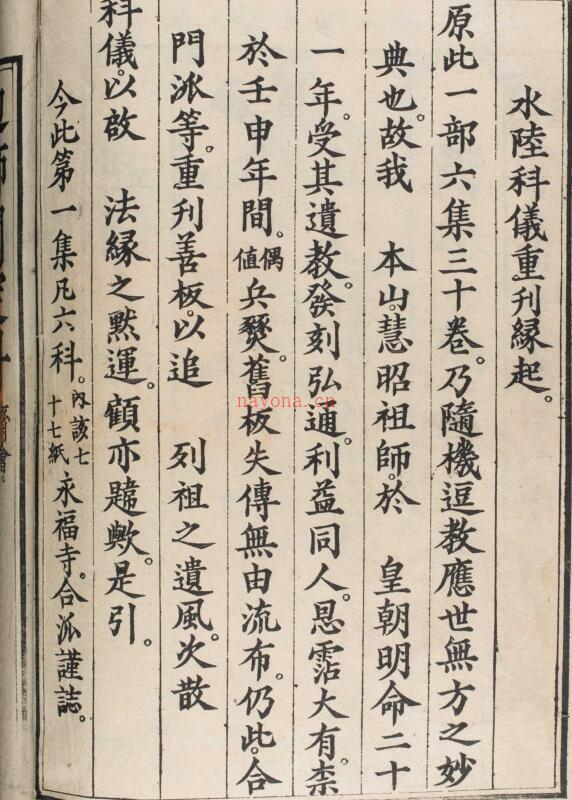 水陸科儀重刊縁起。
原此一部六集三十卷。乃隨機逗教應世無方之妙
典也。故我 本山慧昭祖師。於 皇朝明命二十
一年。受其遺教。發刻弘通。利益同人。恩霑大有。柰
於壬申年間。偶值兵燹。舊板失傳無由流布。仍此。合
門派等。重刊善板。以追 列祖之遺風。次散
科儀。以啟 法縁之默運。顧亦韙歟。是引。
今此第一集凡六科。內該七十七紙永福寺。合派謹誌。
nayona.cn